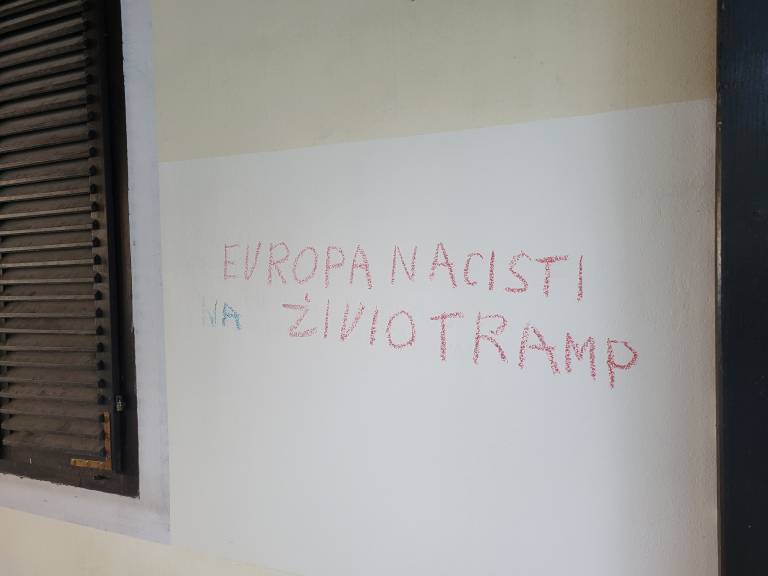 EVROPA NACISTI
NA ŽIVIO TRAMP